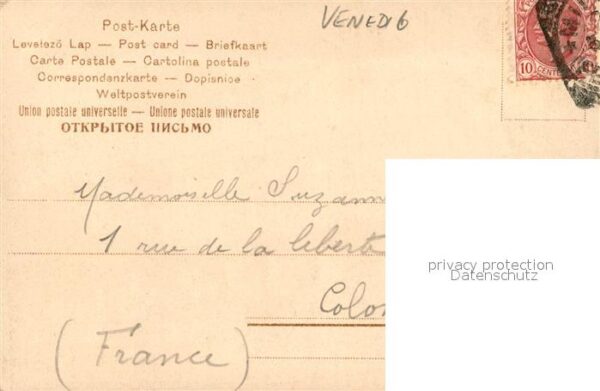 Post-Karte
VENEDIG
Levelező Lap — Post card — Briefkaart
Carte Postale — Cartolina postale
Correspondenzkarte — Dopisnice
Weltpostverein
Union postale universelle — Unione postale universale
ОТКРЫТОЕ ПИСЬМО
10 CENT
Mademoiselle Suzann
1 rue de la liberte
Colo
(France)
privacy protection
Datenschutz